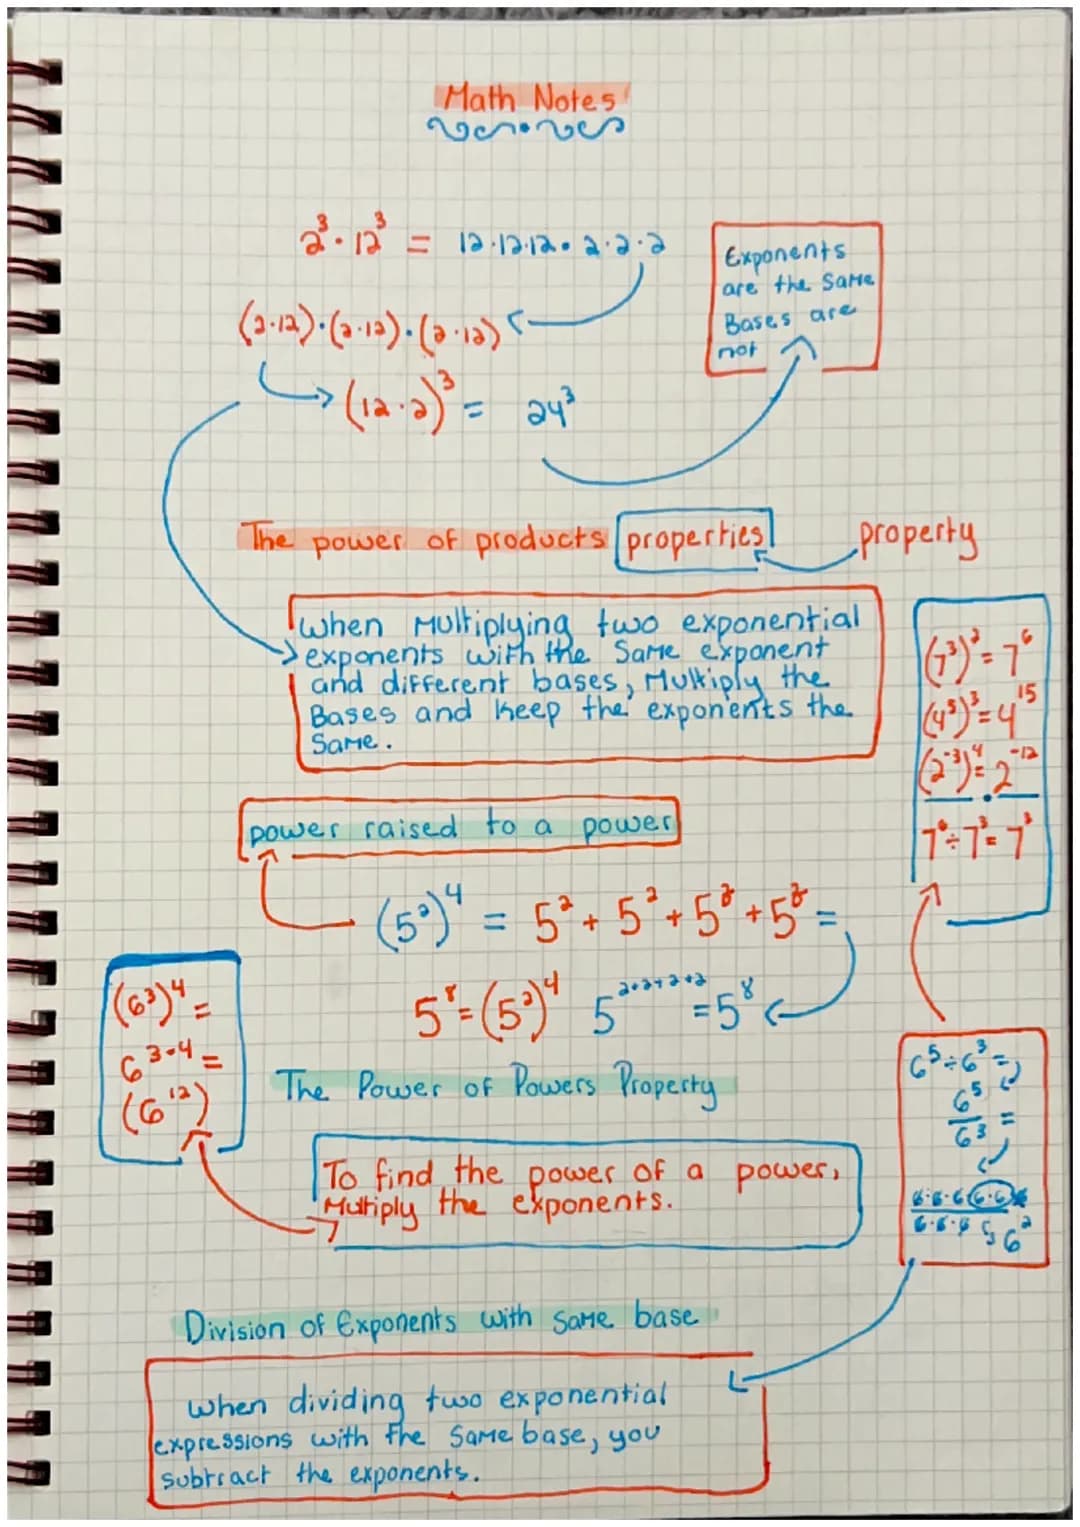 Math Notes
2³ · 12³ = 12·12·12 · 2·2·2
(2·12)·(2·12)·(2·12)
(12·2)³ = 24³
Exponents
are the same
Bases are
not
The power of products properties property
when multiplying two exponential
exponents with the same exponent
and different bases, multiply the
Bases and keep the exponents the
same.
(7³)² = 7⁶
(4⁵)³ = 4¹⁵
(2⁻³)⁴ = 2⁻¹²
7⁶ ÷ 7³ = 7³
power raised to a power
(5²)⁴ = 5² + 5² + 5² + 5² =
5⁸ = (5²)⁴ 5²⁺²⁺²⁺² = 5⁸
(6³)⁴ =
6³·⁴ =
(6¹²)
The Power of Powers Property
To find the power of a power,
Multiply the exponents.
6⁵ ÷ 6³ =
6⁵
6³ =
6·6·6·6·6
6·6·6 6²
Division of Exponents with same base
when dividing two exponential
expressions with the same base, you
subtract the exponents.